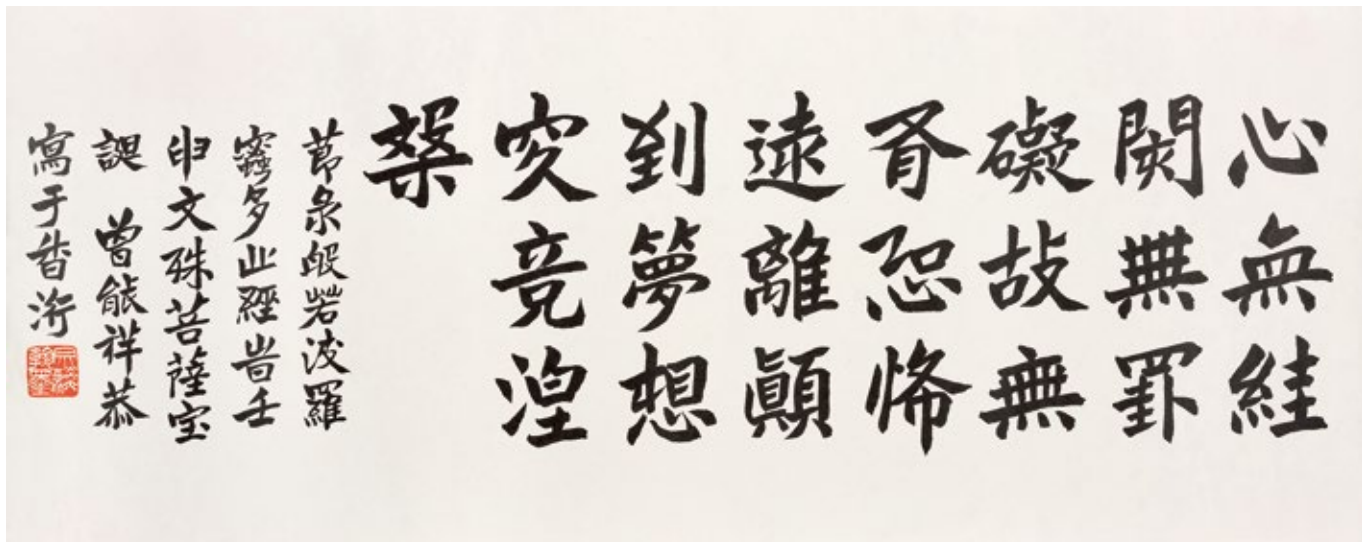 心無絓
閡無罣
礙故無
有恐怖
遠離顛
到夢想
究竟湼
槃
節彔般若波羅
蜜多心經旹壬
申文殊菩薩宝
誕 曾能祥恭
寫于香港